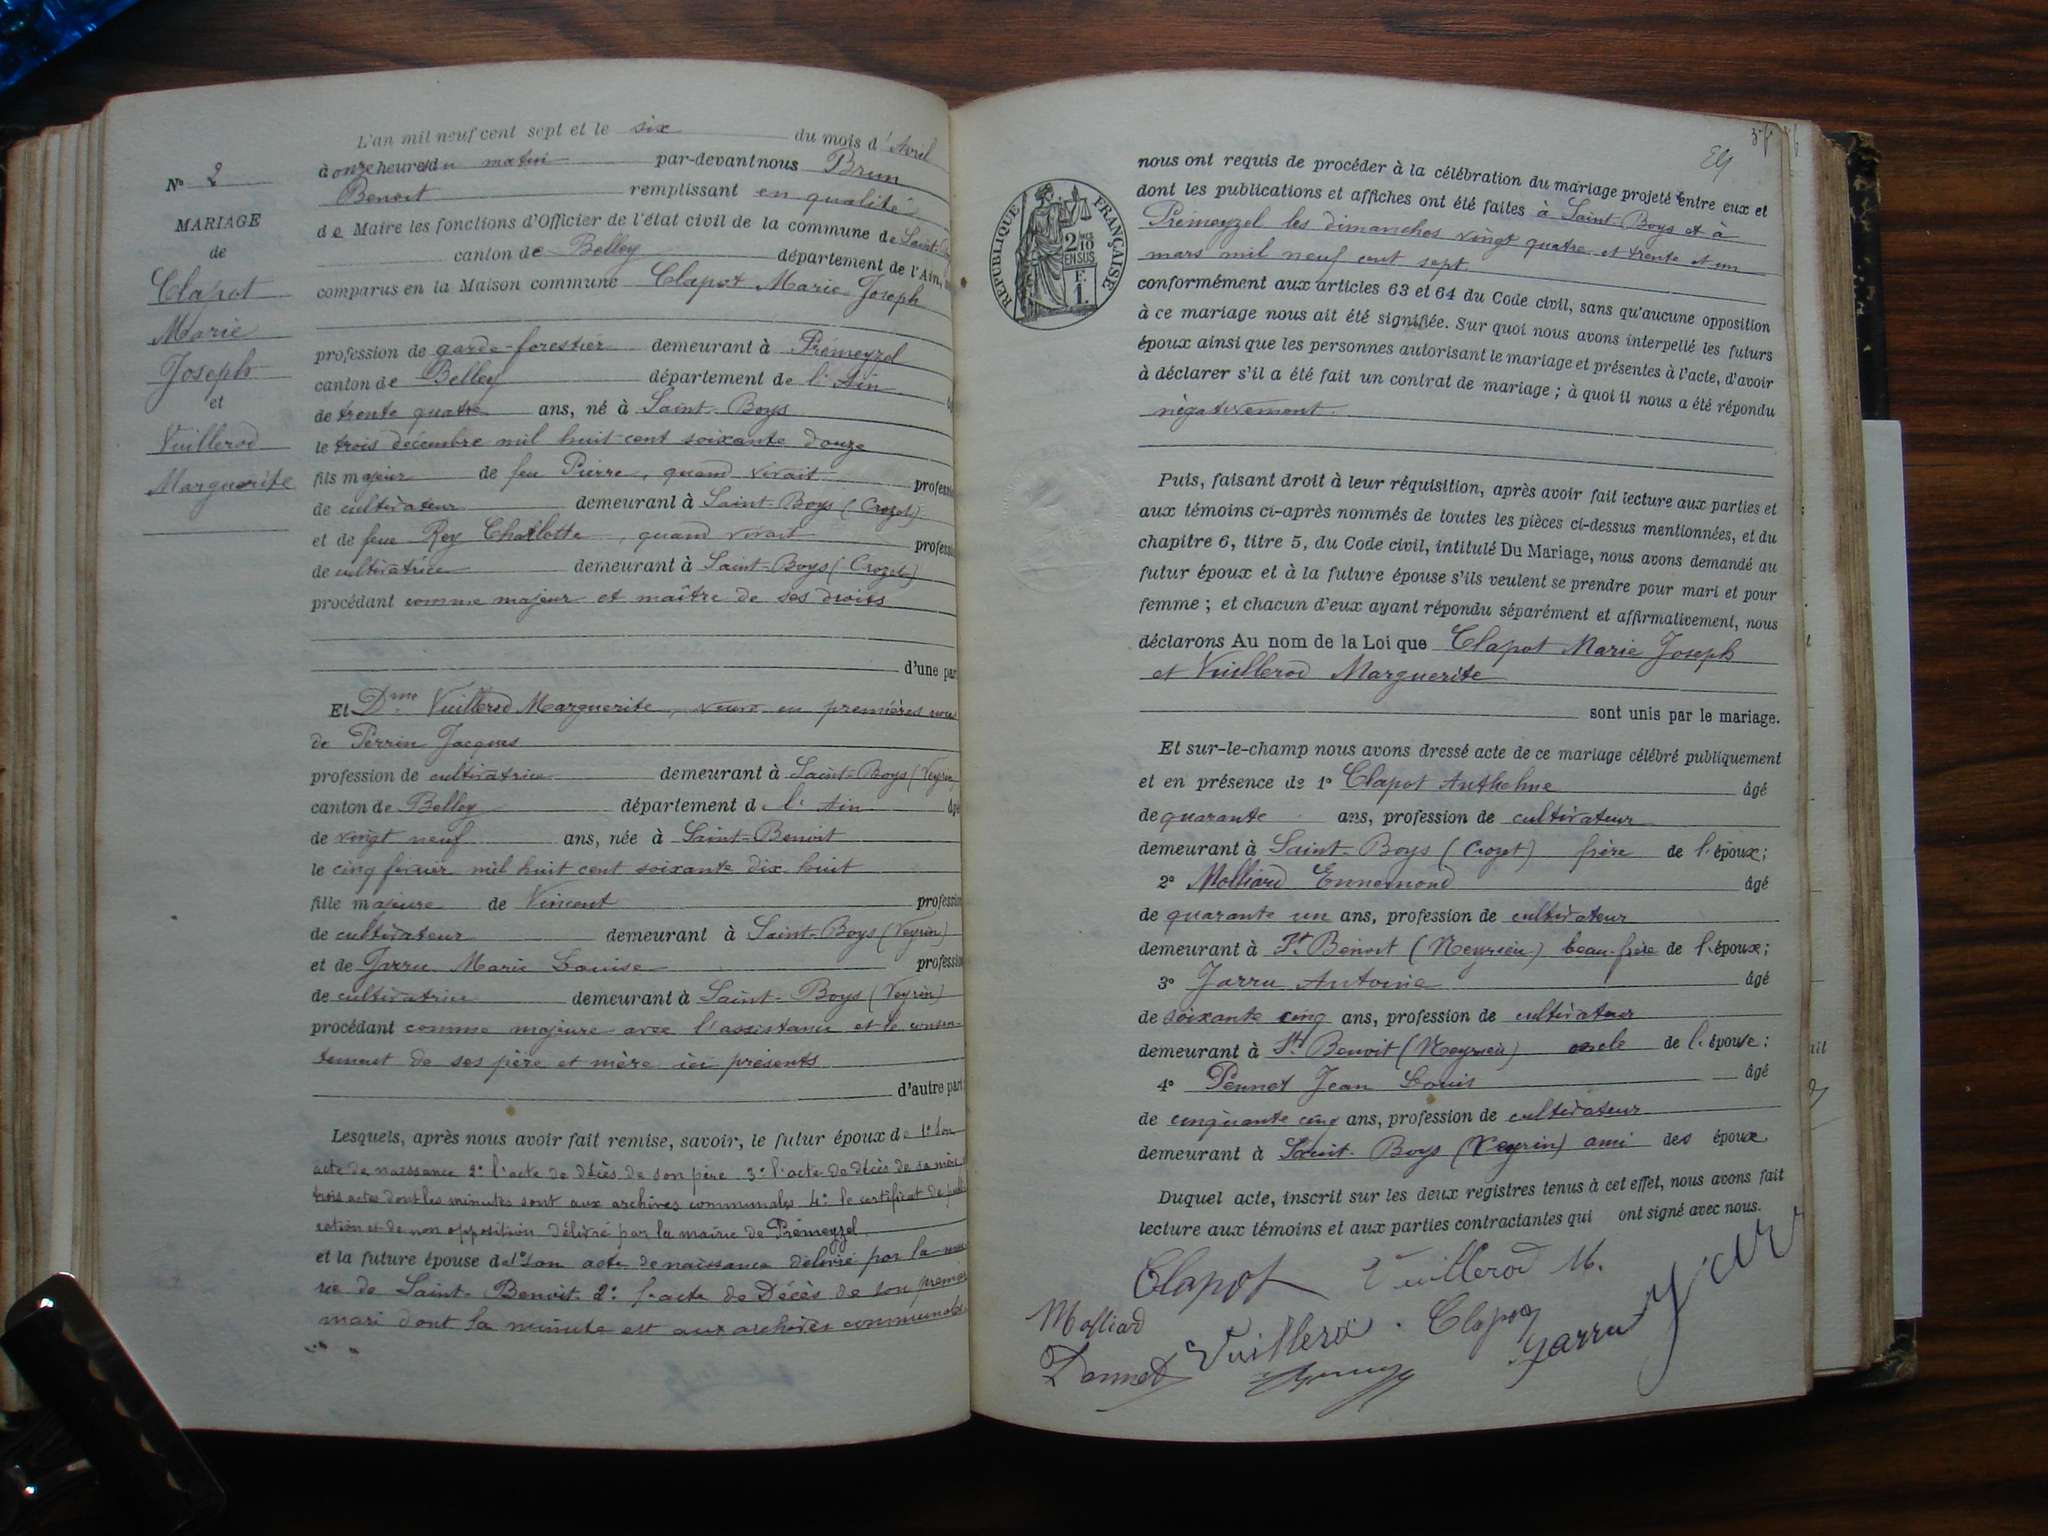 L'an mil neuf cent sept et le six du mois d'Avril
à onze heures du matin par-devant nous Brun
Benoit remplissant en qualité
de Maire les fonctions d'Officier de l'état civil de la commune de Saint-Boys
canton de Belley département de l'Ain,
comparus en la Maison commune Clapot Marie Joseph
profession de garde-forestier demeurant à Prémeyzel
canton de Belley département de l'Ain
de trente quatre ans, né à Saint-Boys
le trois décembre mil huit cent soixante douze
fils majeur de feu Pierre, quand vivait profession
de cultivateur demeurant à Saint-Boys (Crozet)
et de feue Rey Charlotte, quand vivait profession
de cultivatrice demeurant à Saint-Boys (Crozet)
procédant comme majeur et maître de ses droits
d'une part
Et Dme Vuillerod Marguerite, veuve en premières noces
de Perrin Jacques
profession de cultivatrice demeurant à Saint-Boys (Veyrin)
canton de Belley département de l'Ain âgé
de vingt neuf ans, née à Saint-Benoit
le cinq fevrier mil huit cent soixante dix huit
fille majeure de Vincent profession
de cultivateur demeurant à Saint-Boys (Veyrin)
et de Jarru Marie Louise profession
de cultivatrice demeurant à Saint-Boys (Veyrin)
procédant comme majeure avec l'assistance et le consen-
tement de ses père et mère ici présents
d'autre part
Lesquels, après nous avoir fait remise, savoir, le futur époux de 1° son
acte de naissance 2° l'acte de décès de son père 3° l'acte de décès de sa mère
trois actes dont les minutes sont aux archives communales 4° le certificat de publi
cation et de non opposition délivré par la mairie de Prémeyzel
et la future épouse de 1° son acte de naissance délivré par la mai
rie de Saint-Benoit 2° l'acte de Décès de son premier
mari dont la minute est aux archives communales
N° 2
MARIAGE
de
Clapot
Marie
Joseph
et
Vuillerod
Marguerite
nous ont requis de procéder à la célébration du mariage projeté entre eux et
dont les publications et affiches ont été faites à Saint-Boys et à
Prémeyzel les dimanches vingt quatre et trente et un
mars mil neuf cent sept
conformément aux articles 63 et 64 du Code civil, sans qu'aucune opposition
à ce mariage nous ait été signifiée. Sur quoi nous avons interpellé les futurs
époux ainsi que les personnes autorisant le mariage et présentes à l'acte, d'avoir
à déclarer s'il a été fait un contrat de mariage ; à quoi il nous a été répondu
négativement.
Puis, faisant droit à leur réquisition, après avoir fait lecture aux parties et
aux témoins ci-après nommés de toutes les pièces ci-dessus mentionnées, et du
chapitre 6, titre 5, du Code civil, intitulé Du Mariage, nous avons demandé au
futur époux et à la future épouse s'ils veulent se prendre pour mari et pour
femme ; et chacun d'eux ayant répondu séparément et affirmativement, nous
déclarons Au nom de la Loi que Clapot Marie Joseph
et Vuillerod Marguerite
sont unis par le mariage.
Et sur-le-champ nous avons dressé acte de ce mariage célébré publiquement
et en présence de 1° Clapot Anthelme âgé
de quarante ans, profession de cultivateur
demeurant à Saint-Boys (Crozet) frère de l'époux ;
2° Molliard Ennemond âgé
de quarante un ans, profession de cultivateur
demeurant à St Benoit (Meyrieu) beau-frère de l'époux ;
3° Jarru Antoine âgé
de soixante cinq ans, profession de cultivateur
demeurant à St Benoit (Meyrieu) oncle de l'épouse ;
4° Pennet Jean Louis âgé
de cinquante cinq ans, profession de cultivateur
demeurant à Saint-Boys (Veyrin) ami des époux.
Duquel acte, inscrit sur les deux registres tenus à cet effet, nous avons fait
lecture aux témoins et aux parties contractantes qui ont signé avec nous.
Clapot Vuillerod M.
Molliard Vuillerod Clapot Jarru
Pennet
RÉPUBLIQUE FRANÇAISE
2 DMES 10
EN SUS
F.
1.